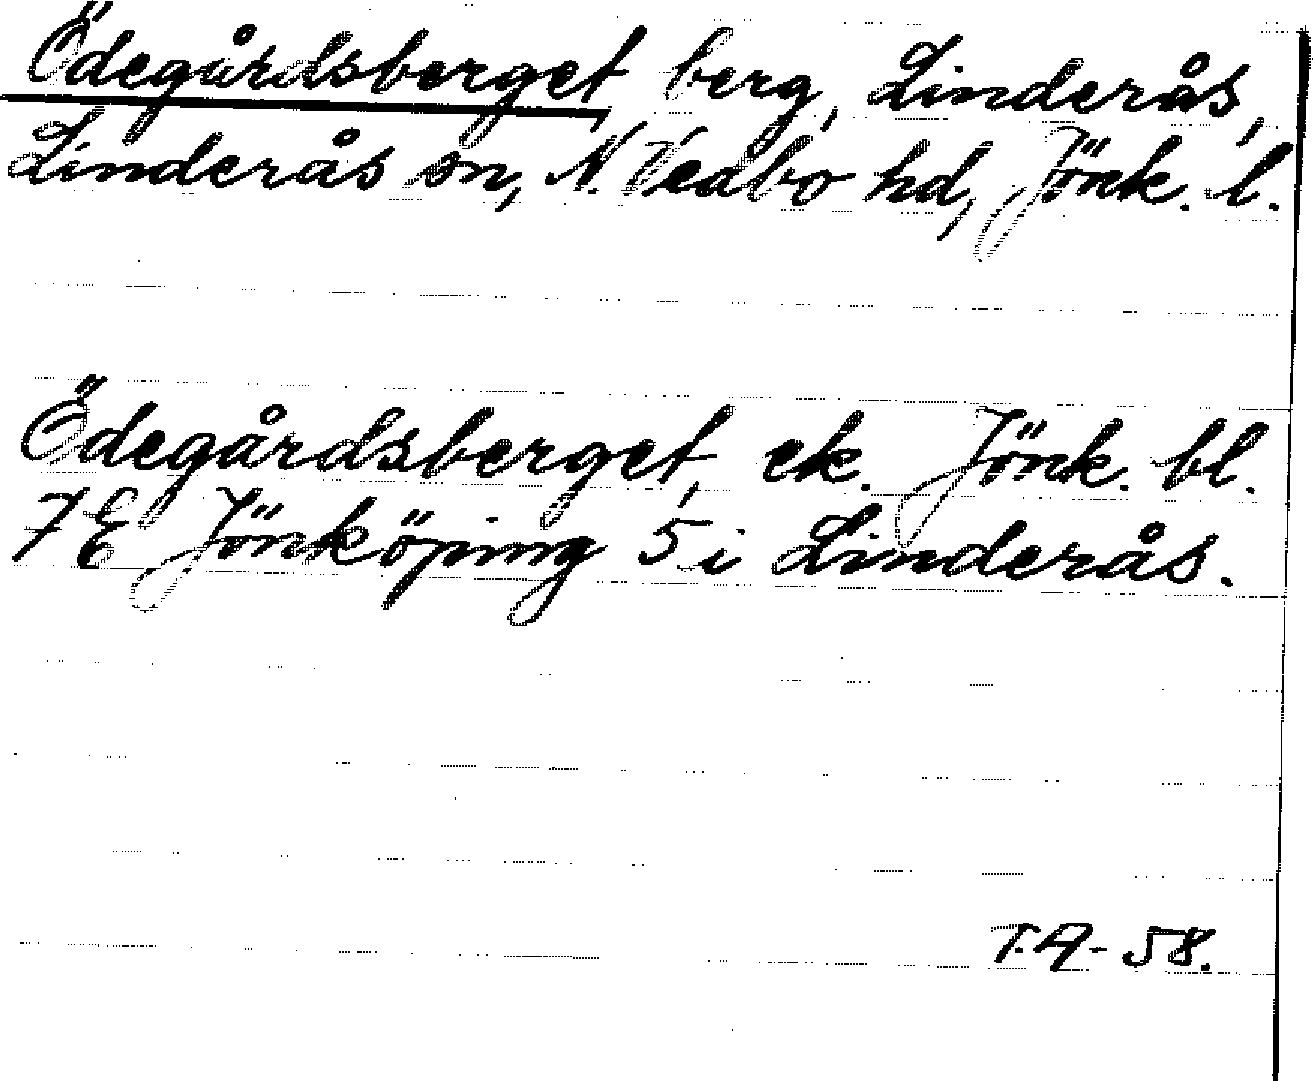 Ödegårdsberget, berg, Linderås,
Linderås sn, N. Vedbo hd, Jönk. l.
Ödegårdsberget, ek. Jönk. bl.
7 E Jönköping 5 i Linderås.
T.A- 58.